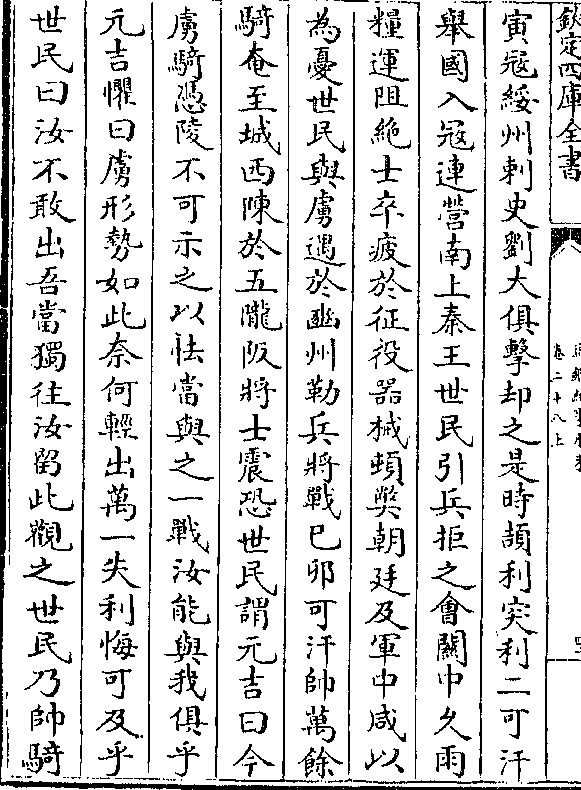 欽定四庫全書
卷二十八上
寅寇綏州刺史劉大俱擊却之是時頡利突利二可汗
舉國入寇連營南上秦王世民引兵拒之會關中久雨
糧運阻絶士卒疲於征役器械頓獘朝廷及軍中咸以
為憂世民與虜遇於豳州勒兵將戰巳卯可汗帥萬餘
騎奄至城西陳於五隴阪將士震恐世民謂元吉曰今
虜騎憑陵不可示之以怯當與之一戰汝能與我俱乎
元吉懼曰虜形勢如此奈何輕出萬一失利悔可及乎
世民曰汝不敢出吾當獨往汝留此觀之世民乃帥騎